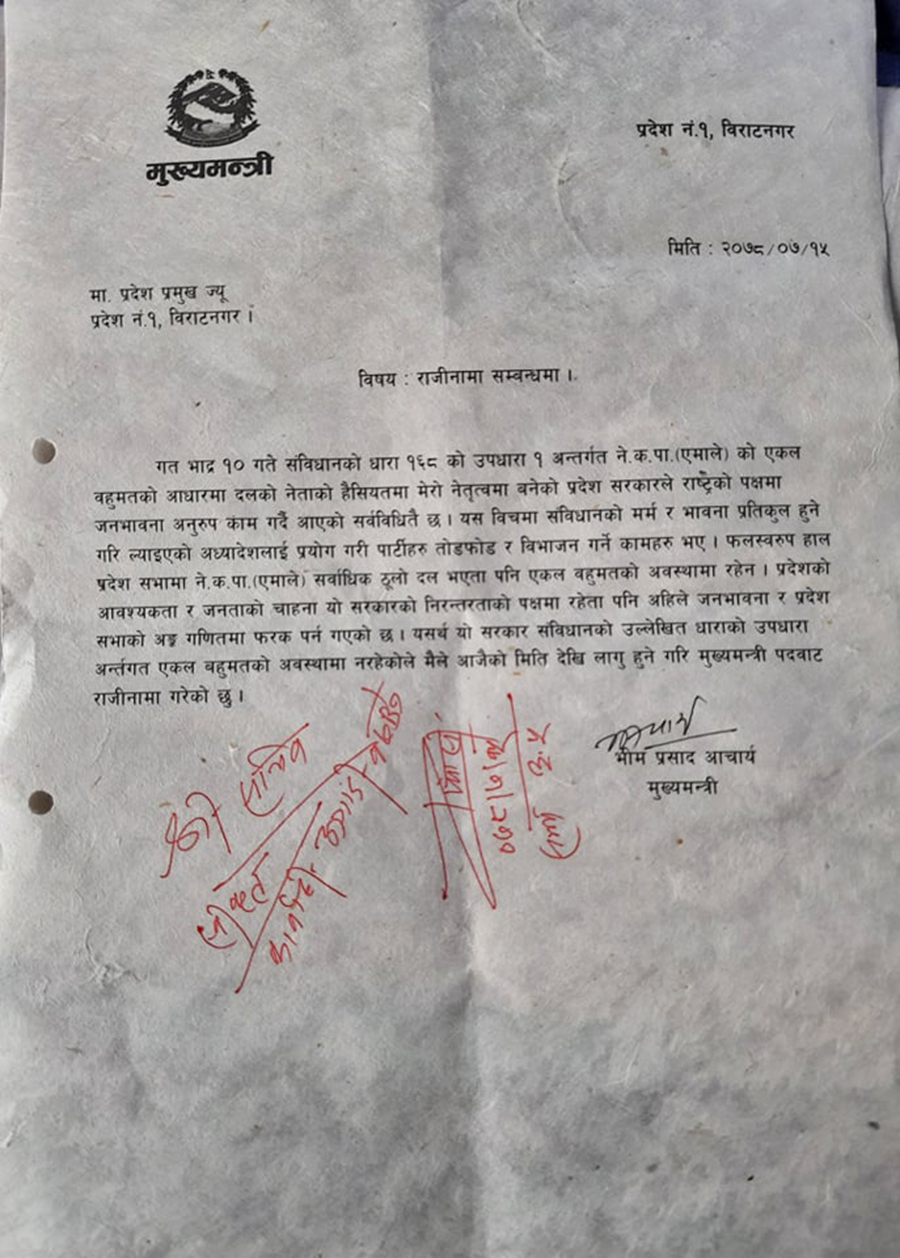 मुख्यमन्त्री
प्रदेश नं.१, विराटनगर
मिति : २०७८/०७/१५
मा. प्रदेश प्रमुख ज्यू
प्रदेश नं.१, विराटनगर ।
विषय : राजीनामा सम्बन्धमा ।
गत भाद्र १० गते संविधानको धारा १६८ को उपधारा १ अन्तर्गत ने.क.पा.(एमाले) को एकल
वहुमतको आधारमा दलको नेताको हैसियतमा मेरो नेतृत्वमा बनेको प्रदेश सरकारले राष्ट्रको पक्षमा
जनभावना अनुरुप काम गर्दै आएको सर्वविधितै छ । यस विचमा संविधानको मर्म र भावना प्रतिकुल हुने
गरि ल्याइएको अध्यादेशलाई प्रयोग गरी पार्टीहरु तोडफोड र विभाजन गर्ने कामहरु भए । फलस्वरुप हाल
प्रदेश सभामा ने.क.पा.(एमाले) सर्वाधिक ठूलो दल भएता पनि एकल बहुमतको अवस्थामा रहेन । प्रदेशको
आवश्यकता र जनताको चाहना यो सरकारको निरन्तरताको पक्षमा रहेता पनि अहिले जनभावना र प्रदेश
सभाको अङ्क गणितमा फरक पर्न गएको छ । यसर्थ यो सरकार संविधानको उल्लेखित धाराको उपधारा
अर्न्तगत एकल बहुमतको अवस्थामा नरहेकोले मैले आजैको मिति देखि लागु हुने गरि मुख्यमन्त्री पदवाट
राजीनामा गरेको छु ।
भीम प्रसाद आचार्य
मुख्यमन्त्री
श्री सचिव